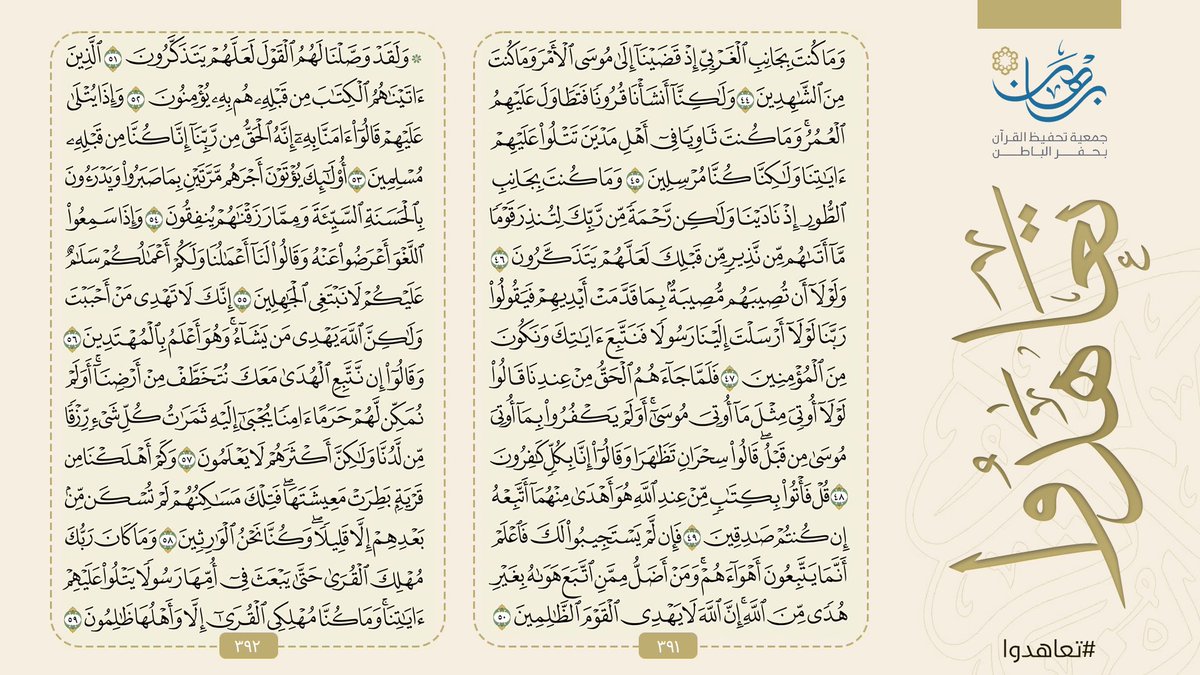 برهان
جمعية تحفيظ القرآن
بحفر الباطن
تعاهدوا
#تعاهدوا
وَمَا كُنتَ بِجَانِبِ ٱلْغَرْبِيِّ إِذْ قَضَيْنَآ إِلَىٰ مُوسَى ٱلْأَمْرَ وَمَا كُنتَ
مِنَ ٱلشَّٰهِدِينَ ٤٤ وَلَٰكِنَّآ أَنشَأْنَا قُرُونًا فَتَطَاوَلَ عَلَيْهِمُ
ٱلْعُمُرُ ۚ وَمَا كُنتَ ثَاوِيًا فِىٓ أَهْلِ مَدْيَنَ تَتْلُوا۟ عَلَيْهِمْ
ءَايَٰتِنَا وَلَٰكِنَّا كُنَّا مُرْسِلِينَ ٤٥ وَمَا كُنتَ بِجَانِبِ
ٱلطُّورِ إِذْ نَادَيْنَا وَلَٰكِن رَّحْمَةً مِّن رَّبِّكَ لِتُنذِرَ قَوْمًا
مَّآ أَتَىٰهُم مِّن نَّذِيرٍ مِّن قَبْلِكَ لَعَلَّهُمْ يَتَذَكَّرُونَ ٤٦
وَلَوْلَآ أَن تُصِيبَهُم مُّصِيبَةٌۢ بِمَا قَدَّمَتْ أَيْدِيهِمْ فَيَقُولُوا۟
رَبَّنَا لَوْلَآ أَرْسَلْتَ إِلَيْنَا رَسُولًا فَنَتَّبِعَ ءَايَٰتِكَ وَنَكُونَ
مِنَ ٱلْمُؤْمِنِينَ ٤٧ فَلَمَّا جَآءَهُمُ ٱلْحَقُّ مِنْ عِندِنَا قَالُوا۟
لَوْلَآ أُوتِىَ مِثْلَ مَآ أُوتِىَ مُوسَىٰٓ ۚ أَوَلَمْ يَكْفُرُوا۟ بِمَآ أُوتِىَ
مُوسَىٰ مِن قَبْلُ ۖ قَالُوا۟ سِحْرَانِ تَظَٰهَرَا وَقَالُوٓا۟ إِنَّا بِكُلٍّ كَٰفِرُونَ
٤٨ قُلْ فَأْتُوا۟ بِكِتَٰبٍ مِّنْ عِندِ ٱللَّهِ هُوَ أَهْدَىٰ مِنْهُمَآ أَتَّبِعْهُ
إِن كُنتُمْ صَٰدِقِينَ ٤٩ فَإِن لَّمْ يَسْتَجِيبُوا۟ لَكَ فَٱعْلَمْ
أَنَّمَا يَتَّبِعُونَ أَهْوَآءَهُمْ ۚ وَمَنْ أَضَلُّ مِمَّنِ ٱتَّبَعَ هَوَىٰهُ بِغَيْرِ
هُدًى مِّنَ ٱللَّهِ ۚ إِنَّ ٱللَّهَ لَا يَهْدِى ٱلْقَوْمَ ٱلظَّٰلِمِينَ ٥٠
٣٩١
۞ وَلَقَدْ وَصَّلْنَا لَهُمُ ٱلْقَوْلَ لَعَلَّهُمْ يَتَذَكَّرُونَ ٥١ ٱلَّذِينَ
ءَاتَيْنَٰهُمُ ٱلْكِتَٰبَ مِن قَبْلِهِۦ هُم بِهِۦ يُؤْمِنُونَ ٥٢ وَإِذَا يُتْلَىٰ
عَلَيْهِمْ قَالُوٓا۟ ءَامَنَّا بِهِۦٓ إِنَّهُ ٱلْحَقُّ مِن رَّبِّنَآ إِنَّا كُنَّا مِن قَبْلِهِۦ
مُسْلِمِينَ ٥٣ أُو۟لَٰٓئِكَ يُؤْتَوْنَ أَجْرَهُم مَّرَّتَيْنِ بِمَا صَبَرُوا۟ وَيَدْرَءُونَ
بِٱلْحَسَنَةِ ٱلسَّيِّئَةَ وَمِمَّا رَزَقْنَٰهُمْ يُنفِقُونَ ٥٤ وَإِذَا سَمِعُوا۟
ٱللَّغْوَ أَعْرَضُوا۟ عَنْهُ وَقَالُوا۟ لَنَآ أَعْمَٰلُنَا وَلَكُمْ أَعْمَٰلُكُمْ سَلَٰمٌ
عَلَيْكُمْ لَا نَبْتَغِى ٱلْجَٰهِلِينَ ٥٥ إِنَّكَ لَا تَهْدِى مَنْ أَحْبَبْتَ
وَلَٰكِنَّ ٱللَّهَ يَهْدِى مَن يَشَآءُ ۚ وَهُوَ أَعْلَمُ بِٱلْمُهْتَدِينَ ٥٦
وَقَالُوٓا۟ إِن نَّتَّبِعِ ٱلْهُدَىٰ مَعَكَ نُتَخَطَّفْ مِنْ أَرْضِنَآ ۚ أَوَلَمْ
نُمَكِّن لَّهُمْ حَرَمًا ءَامِنًا يُجْبَىٰٓ إِلَيْهِ ثَمَرَٰتُ كُلِّ شَىْءٍ رِّزْقًا
مِّن لَّدُنَّا وَلَٰكِنَّ أَكْثَرَهُمْ لَا يَعْلَمُونَ ٥٧ وَكَمْ أَهْلَكْنَا مِن
قَرْيَةٍۭ بَطِرَتْ مَعِيشَتَهَا ۖ فَتِلْكَ مَسَٰكِنُهُمْ لَمْ تُسْكَن مِّنۢ
بَعْدِهِمْ إِلَّا قَلِيلًا ۖ وَكُنَّا نَحْنُ ٱلْوَٰرِثِينَ ٥٨ وَمَا كَانَ رَبُّكَ
مُهْلِكَ ٱلْقُرَىٰ حَتَّىٰ يَبْعَثَ فِىٓ أُمِّهَا رَسُولًا يَتْلُوا۟ عَلَيْهِمْ
ءَايَٰتِنَا ۚ وَمَا كُنَّا مُهْلِكِى ٱلْقُرَىٰٓ إِلَّا وَأَهْلُهَا ظَٰلِمُونَ ٥٩
٣٩٢